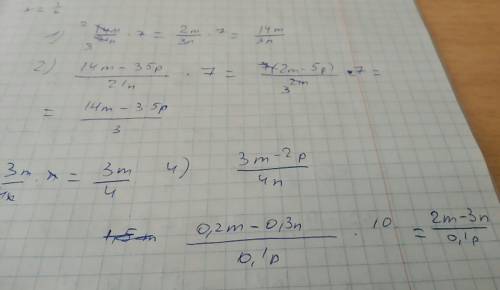 1) 14m/21n · 7 = 2m/3n · 7 = 14m/3n
2) 14m - 35p/21n · 7 = 7(2m - 5p)/3 · 7 =
= 14m - 35p/3
3m/4x · x = 3m/4 4) 3m - 2p/4n
0,2m - 0,3n/0,1p · 10 = 2m - 3n/0,1p